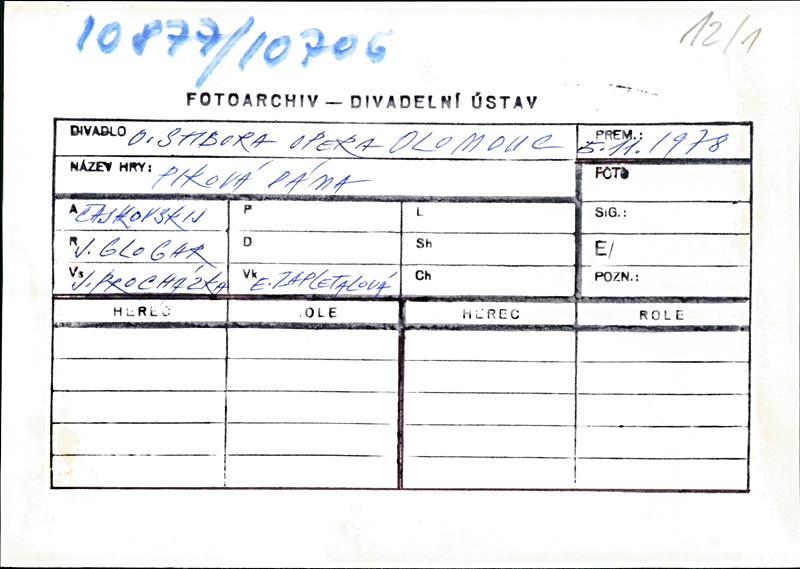 10877/10706
12/1
FOTOARCHIV — DIVADELNÍ ÚSTAV
DIVADLO O. STIBORA OPERA OLOMOUC
PREM.: 5.11.1978
NÁZEV HRY: PIKOVÁ DÁMA
FOTO
A ČAJKOVSKIJ P L SIG.:
R J. GLOGAR D Sh E/
Vs J. PROCHÁZKA Vk E. ZAPLETALOVÁ Ch POZN.:
HEREC ROLE HEREC ROLE